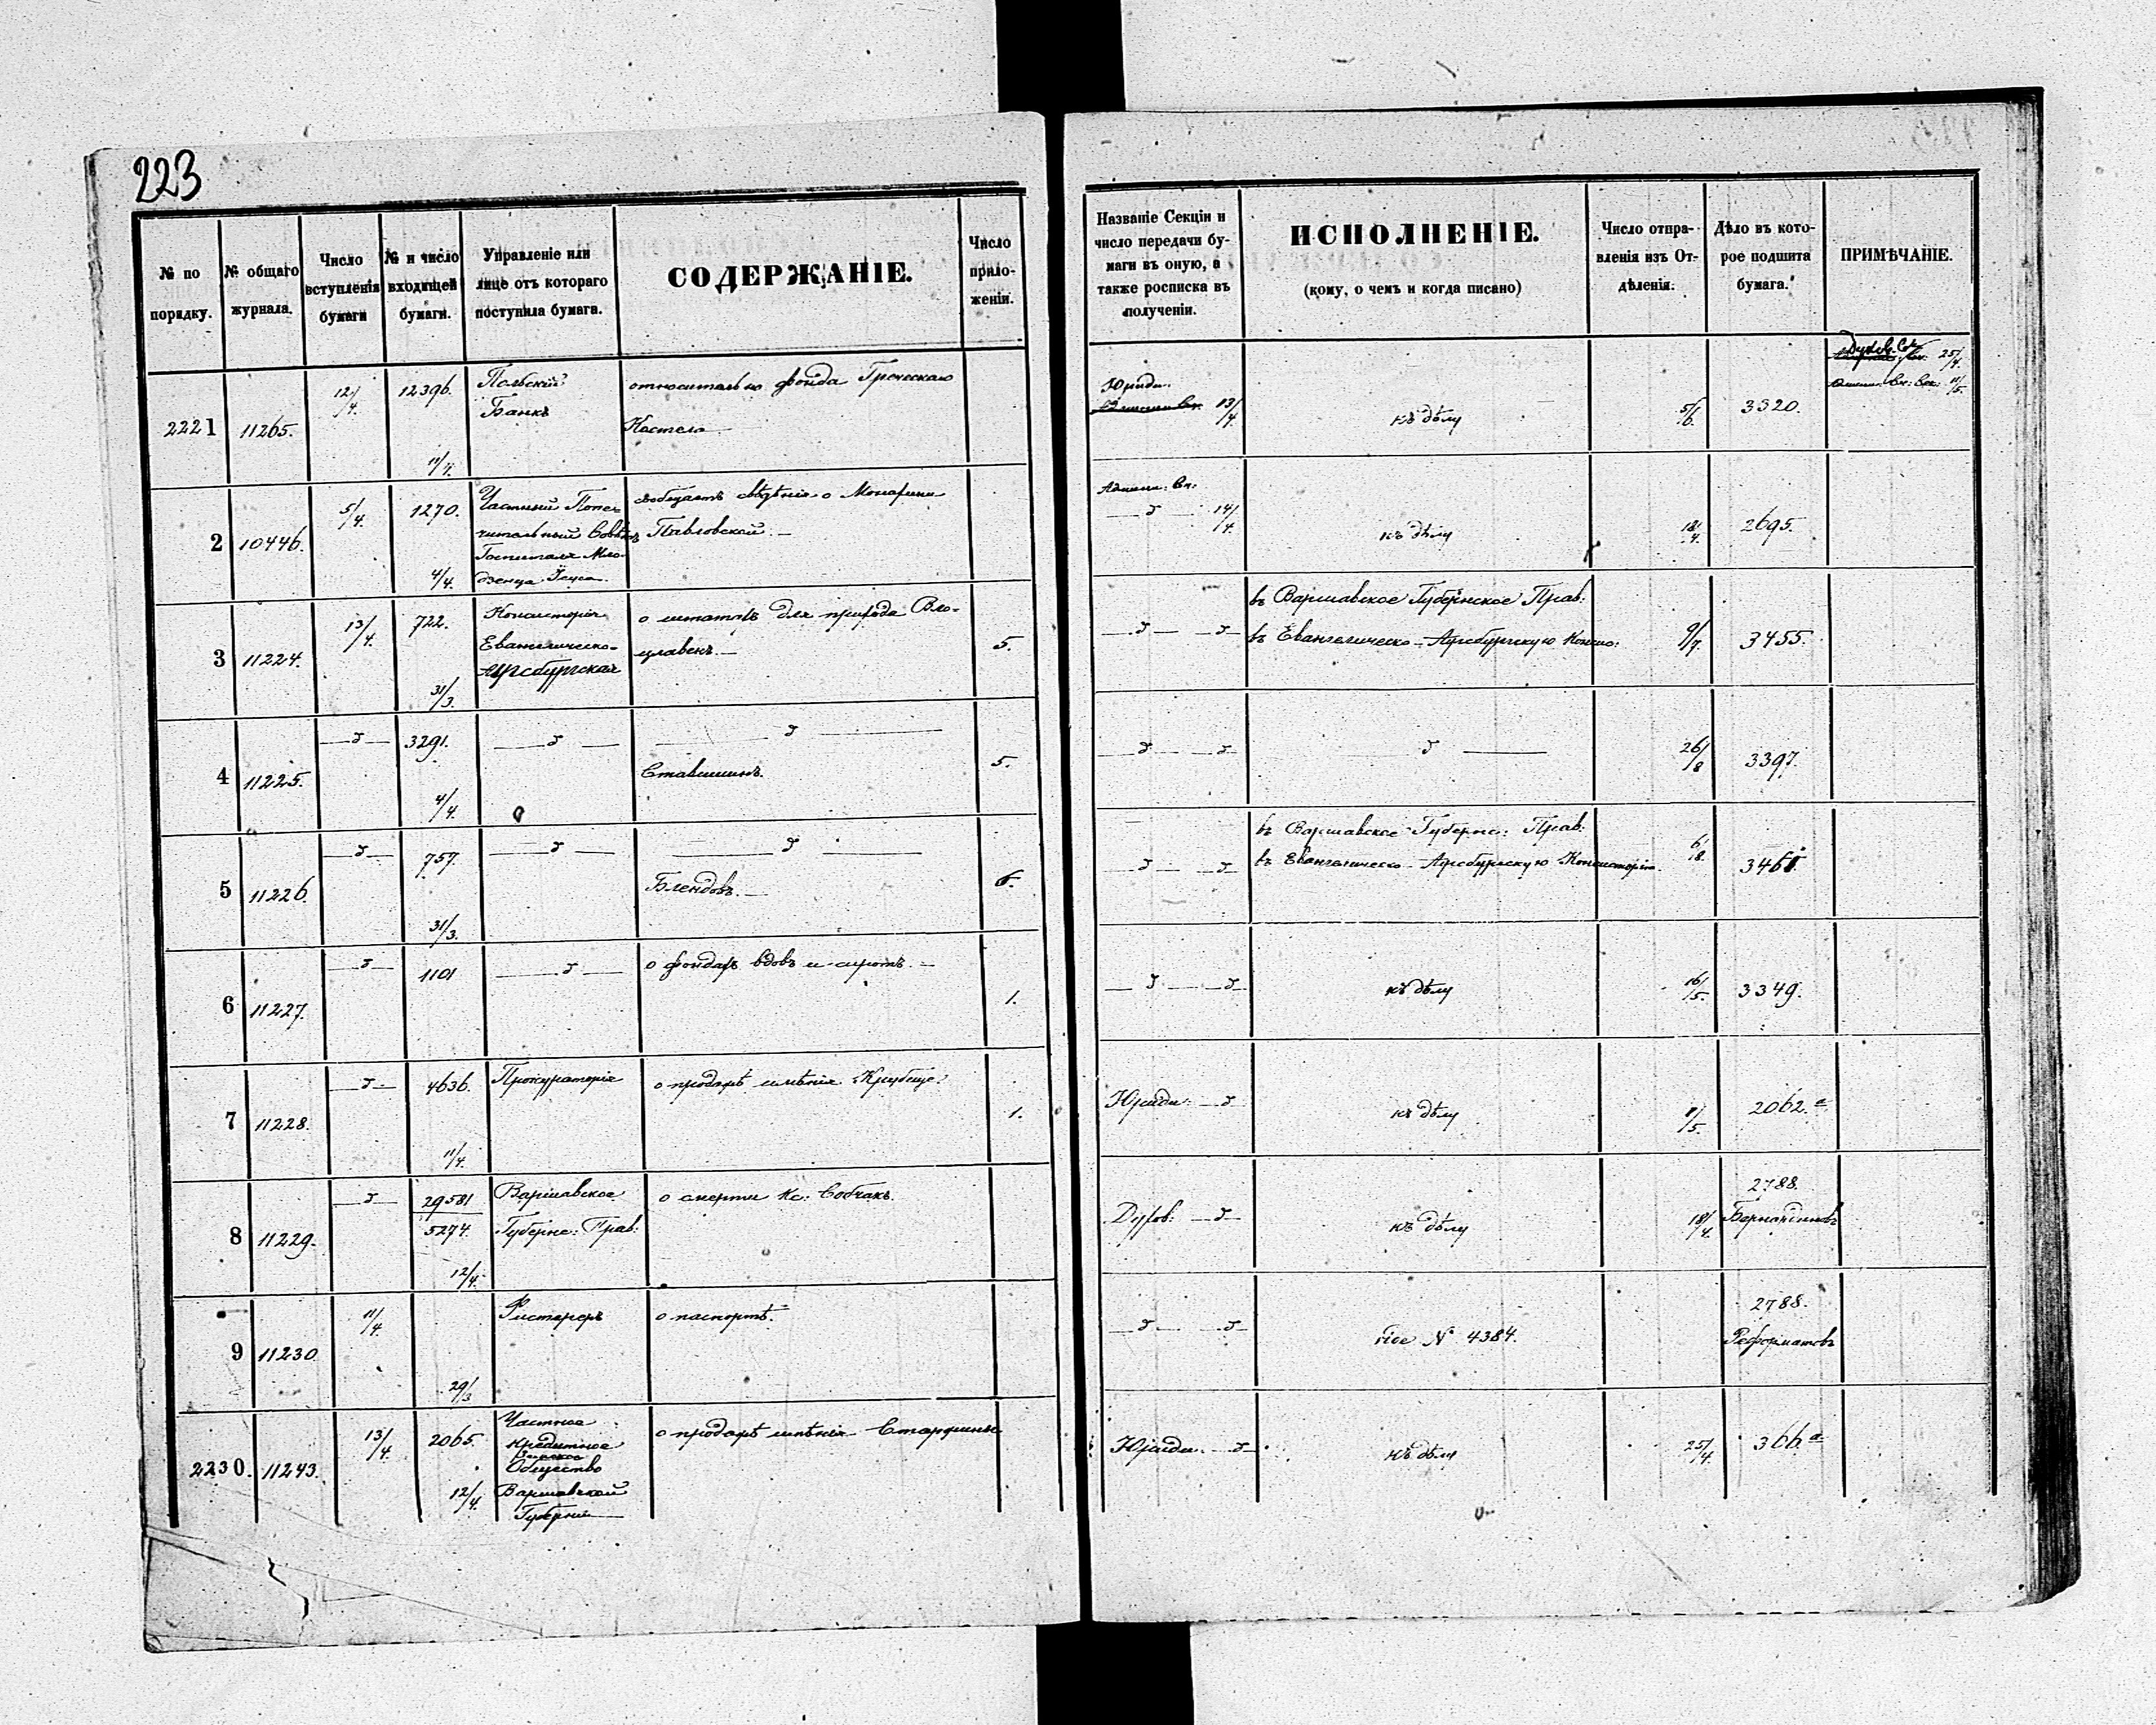 223
№ по порядку.
№ общаго журнала.
Число вступленія бумаги
№ и число входящей бумаги.
Управленіе или лице отъ котораго поступила бумага.
СОДЕРЖАНІЕ.
Число приложеніи.
Названіе Секціи и число передачи бумаги въ оную, а также росписка въ полученіи.
ИСПОЛНЕНІЕ.
(кому, о чемъ и когда писано)
Число отправленія изъ Отдѣленія.
Дѣло въ которое подшита бумага.
ПРИМѢЧАНІЕ.
2221 11265. 12/4. 12396. 11/4. Польскій
Банкъ
относительно фонда Греческаго
Костела
Юриди. 13/4. къ дѣлу 5/6. 3320. Духов. Сек. 25/4.
11/5.
2 10446. 5/4. 1270. 4/4. Частный Попе-
чительный Совѣтъ
Госпиталя Мла-
денца Іисуса.
сообщаетъ свѣдѣнія о
Павловской.
Админ: Вн:
14/4. къ дѣлу 18/4. 2695.
3 11224. 13/4. 722. 31/3. Консисторія
Евангелическо-
Аугсбургская
о штатѣ для прихода Вло-
цлавекъ. 5.
въ Варшавское Губернское Прав:
въ Евангелическо-Аугсбургскую Консис: 9/7. 3455.
4 11225. 3291. 4/4.
Ставишинъ. 5. 26/8 3397.
5 11226. 757. 31/3.
Блендовъ. 6.
въ Варшавское Губернс: Прав:
въ Евангелическо-Аугсбургскую Консисторію. 6/8. 3461
6 11227. 1101 о фондахъ вдовъ и сиротъ. 1. къ дѣлу 16/5. 3349.
7 11228. 4636. 11/4. Прокураторія о продажѣ имѣнія 1. Юриди. къ дѣлу /5. 2062.а
8 11229. 29581
5274. 12/4. Варшавское
Губернс: Прав:
о смерти Кс: Собчакъ. Духов: къ дѣлу 18/4. 2788.
Бернардиновъ
9 11230 11/4. 29/3 о паспортѣ. vide № 4384. 2788.
Реформатовъ
2230. 11243. 13/4. 2065. 12/4. Частное
Кредитное
Земское
Общество
Варшавской
Губерніи
о продажѣ имѣнія Юриди. къ дѣлу 25/4. 366.а